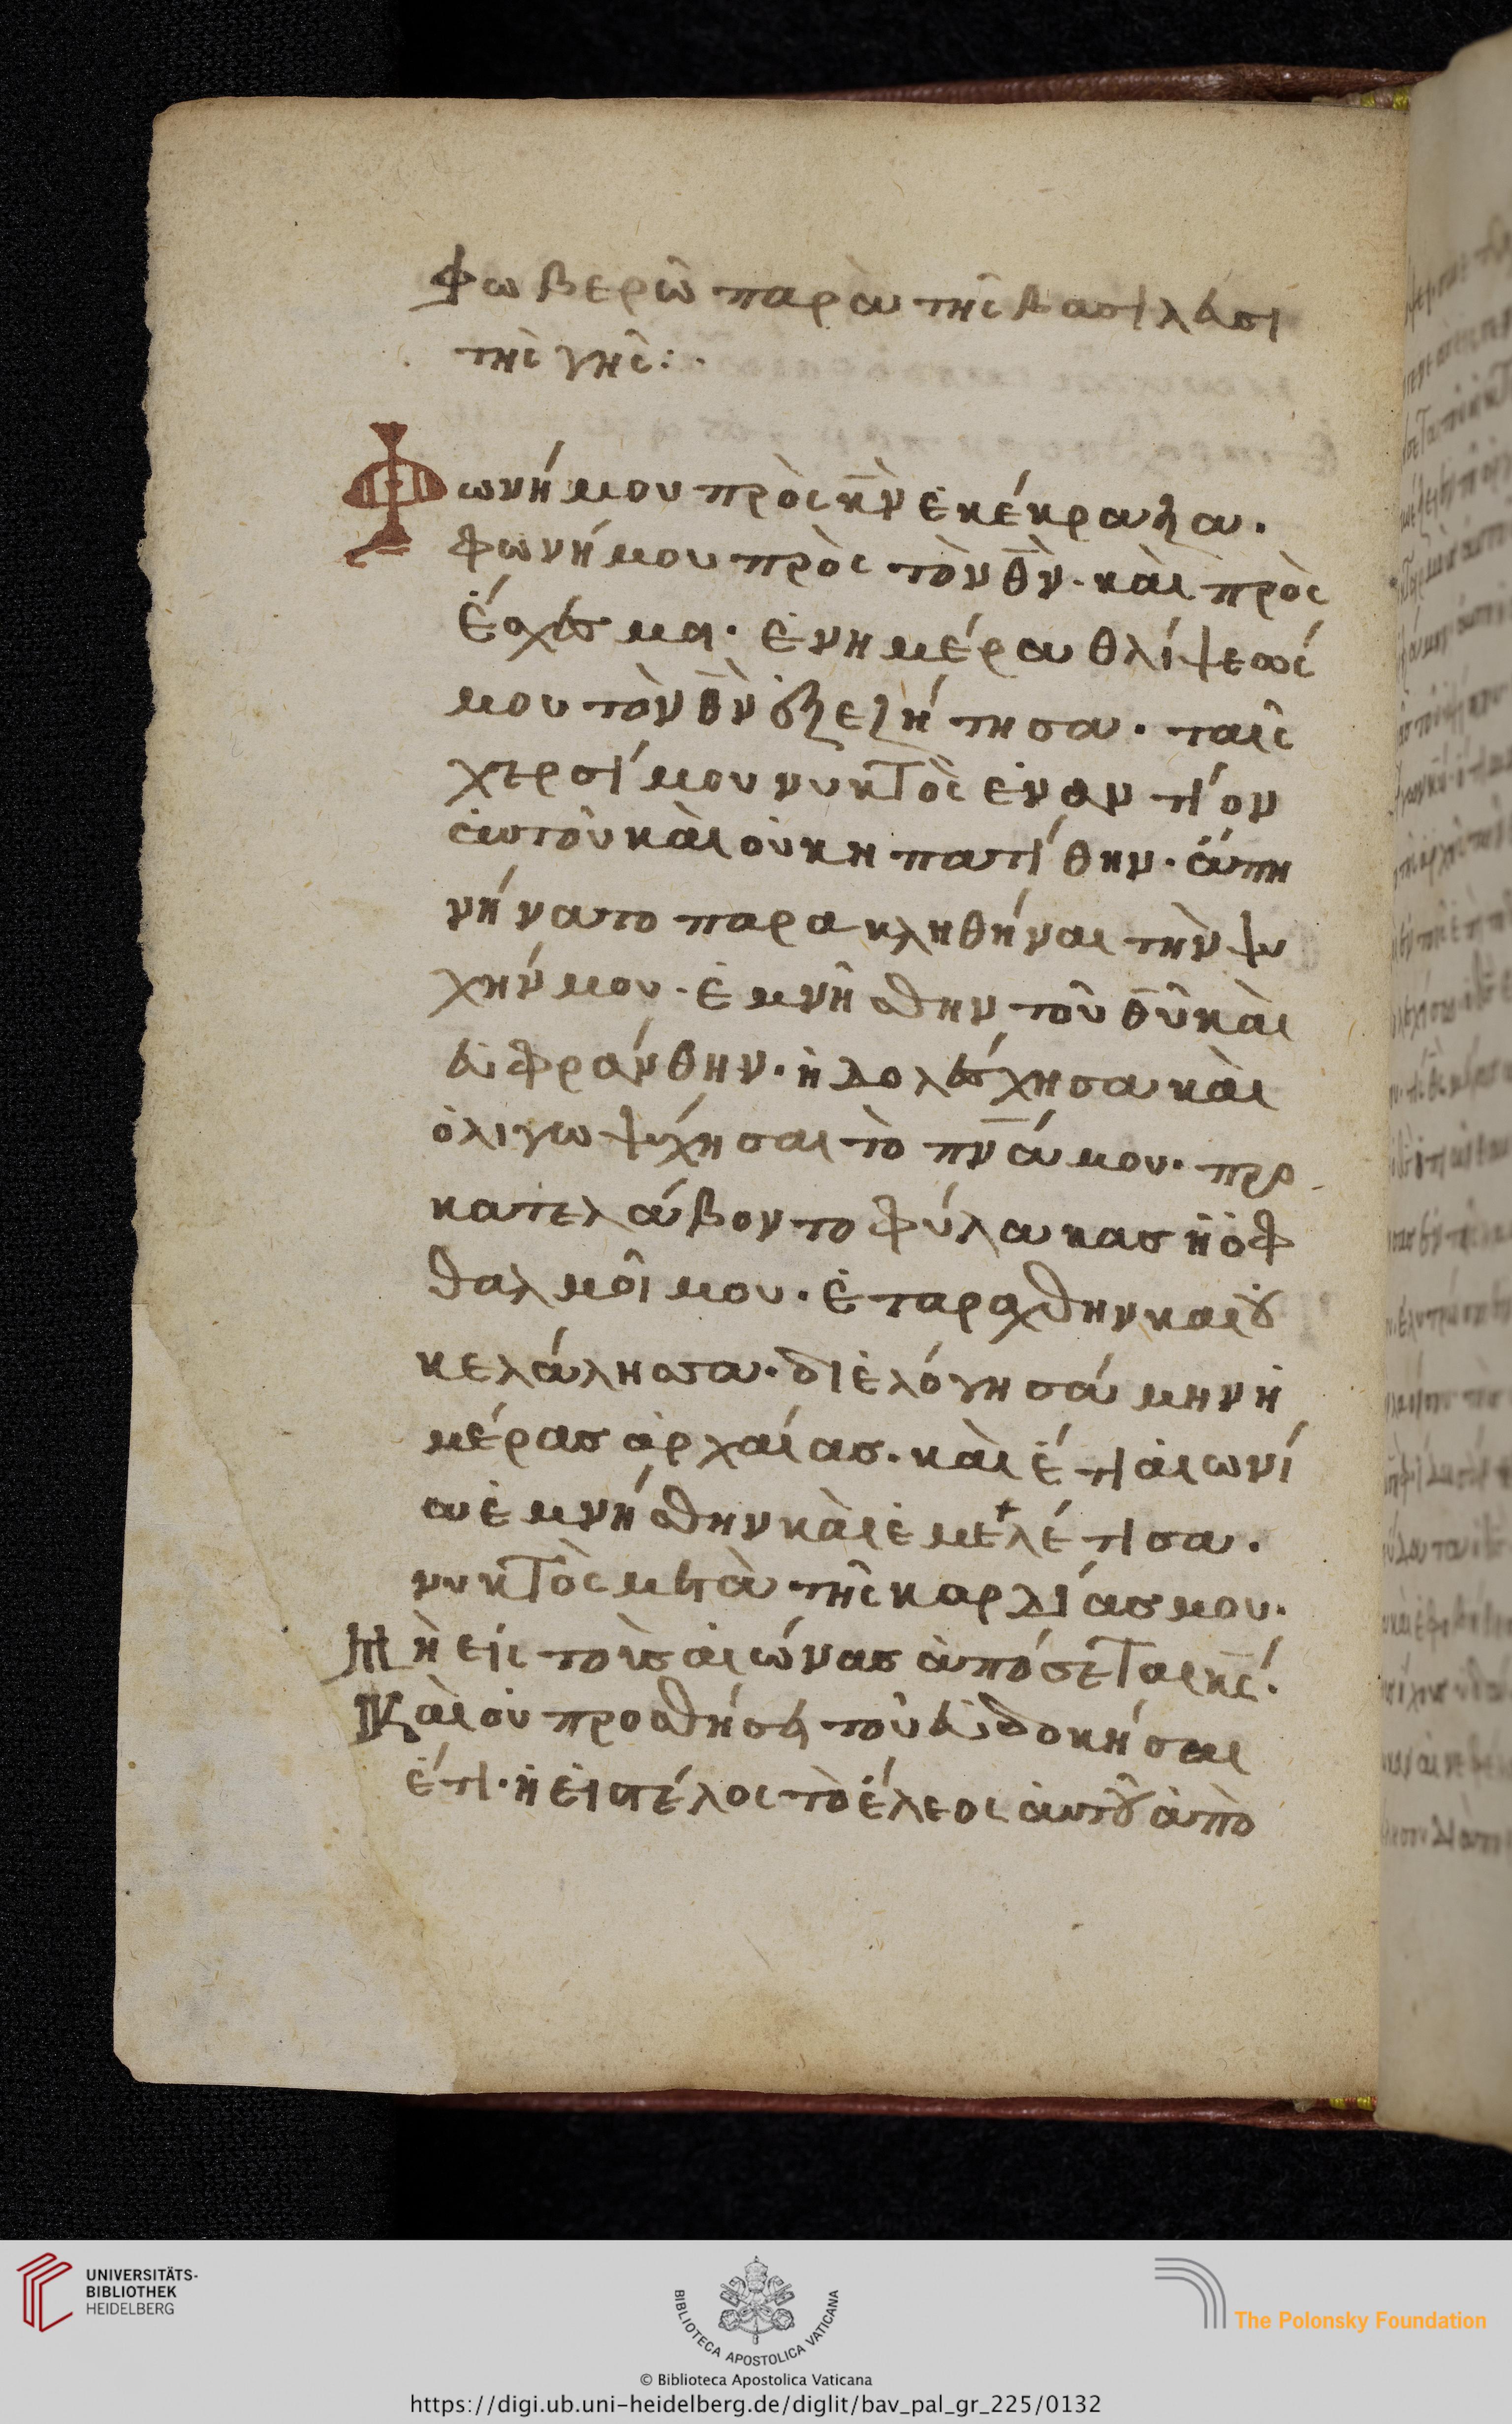 φωβερῶ παρὰ τῆς βασιλεῦσι
τῆς γῆς:·
Φωνή μου πρὸς κ̅ν̅ ἐκέκραξα.
φωνή μου πρὸς τὸν θ̅ν̅. καὶ πρὸς
ἔσχε μοι. ἐν ημέρα θλίψεώς
μου τὸν θ̅ν̅ ἐξεζήτησα. ταῖς
χερσί μου νυκτὸς ἐναντίον
ἀυτοῦ καὶ οὐκ ηπατίθην. ἀπη
νήνατο παρακληθήναι τὴν ψυ
χήν μου. ἐμνῆσθην τοῦ θ̅υ̅ καὶ
εὐφράνθην. ἠδολέσχησα καὶ
ὀλιγωψύχησαι τὸ π̅ν̅ά μου. προ
κατελάβοντο φύλακασ ἡ ὀφ
θαλμοῖ μου. ἐταράχθην και οὐ
κ ελάλησα. διελόγησάμην ἡ
μέρασ ἀρχαίασ. καὶ ἔτι ἀιωνί
α ἐμνήσθην καὶ ἐμελέτισα.
νυκτὸς μετὰ τῆς καρδίασ μου.
Μὴ εἰς τοὺσ ἀιώνασ ἀπόσεται κ̅ς̅.
Καὶ οὐ προσθήσει τοῦ εὐδοκήσαι
ἔτι. ἢ εἰς τέλος τὸ ἔλεος ἀυτοῦ ἀπὸ
UNIVERSITÄTS-
BIBLIOTHEK
HEIDELBERG
BIBLIOTECA APOSTOLICA VATICANA
The Polonsky Foundation
© Biblioteca Apostolica Vaticana
https://digi.ub.uni-heidelberg.de/diglit/bav_pal_gr_225/0132